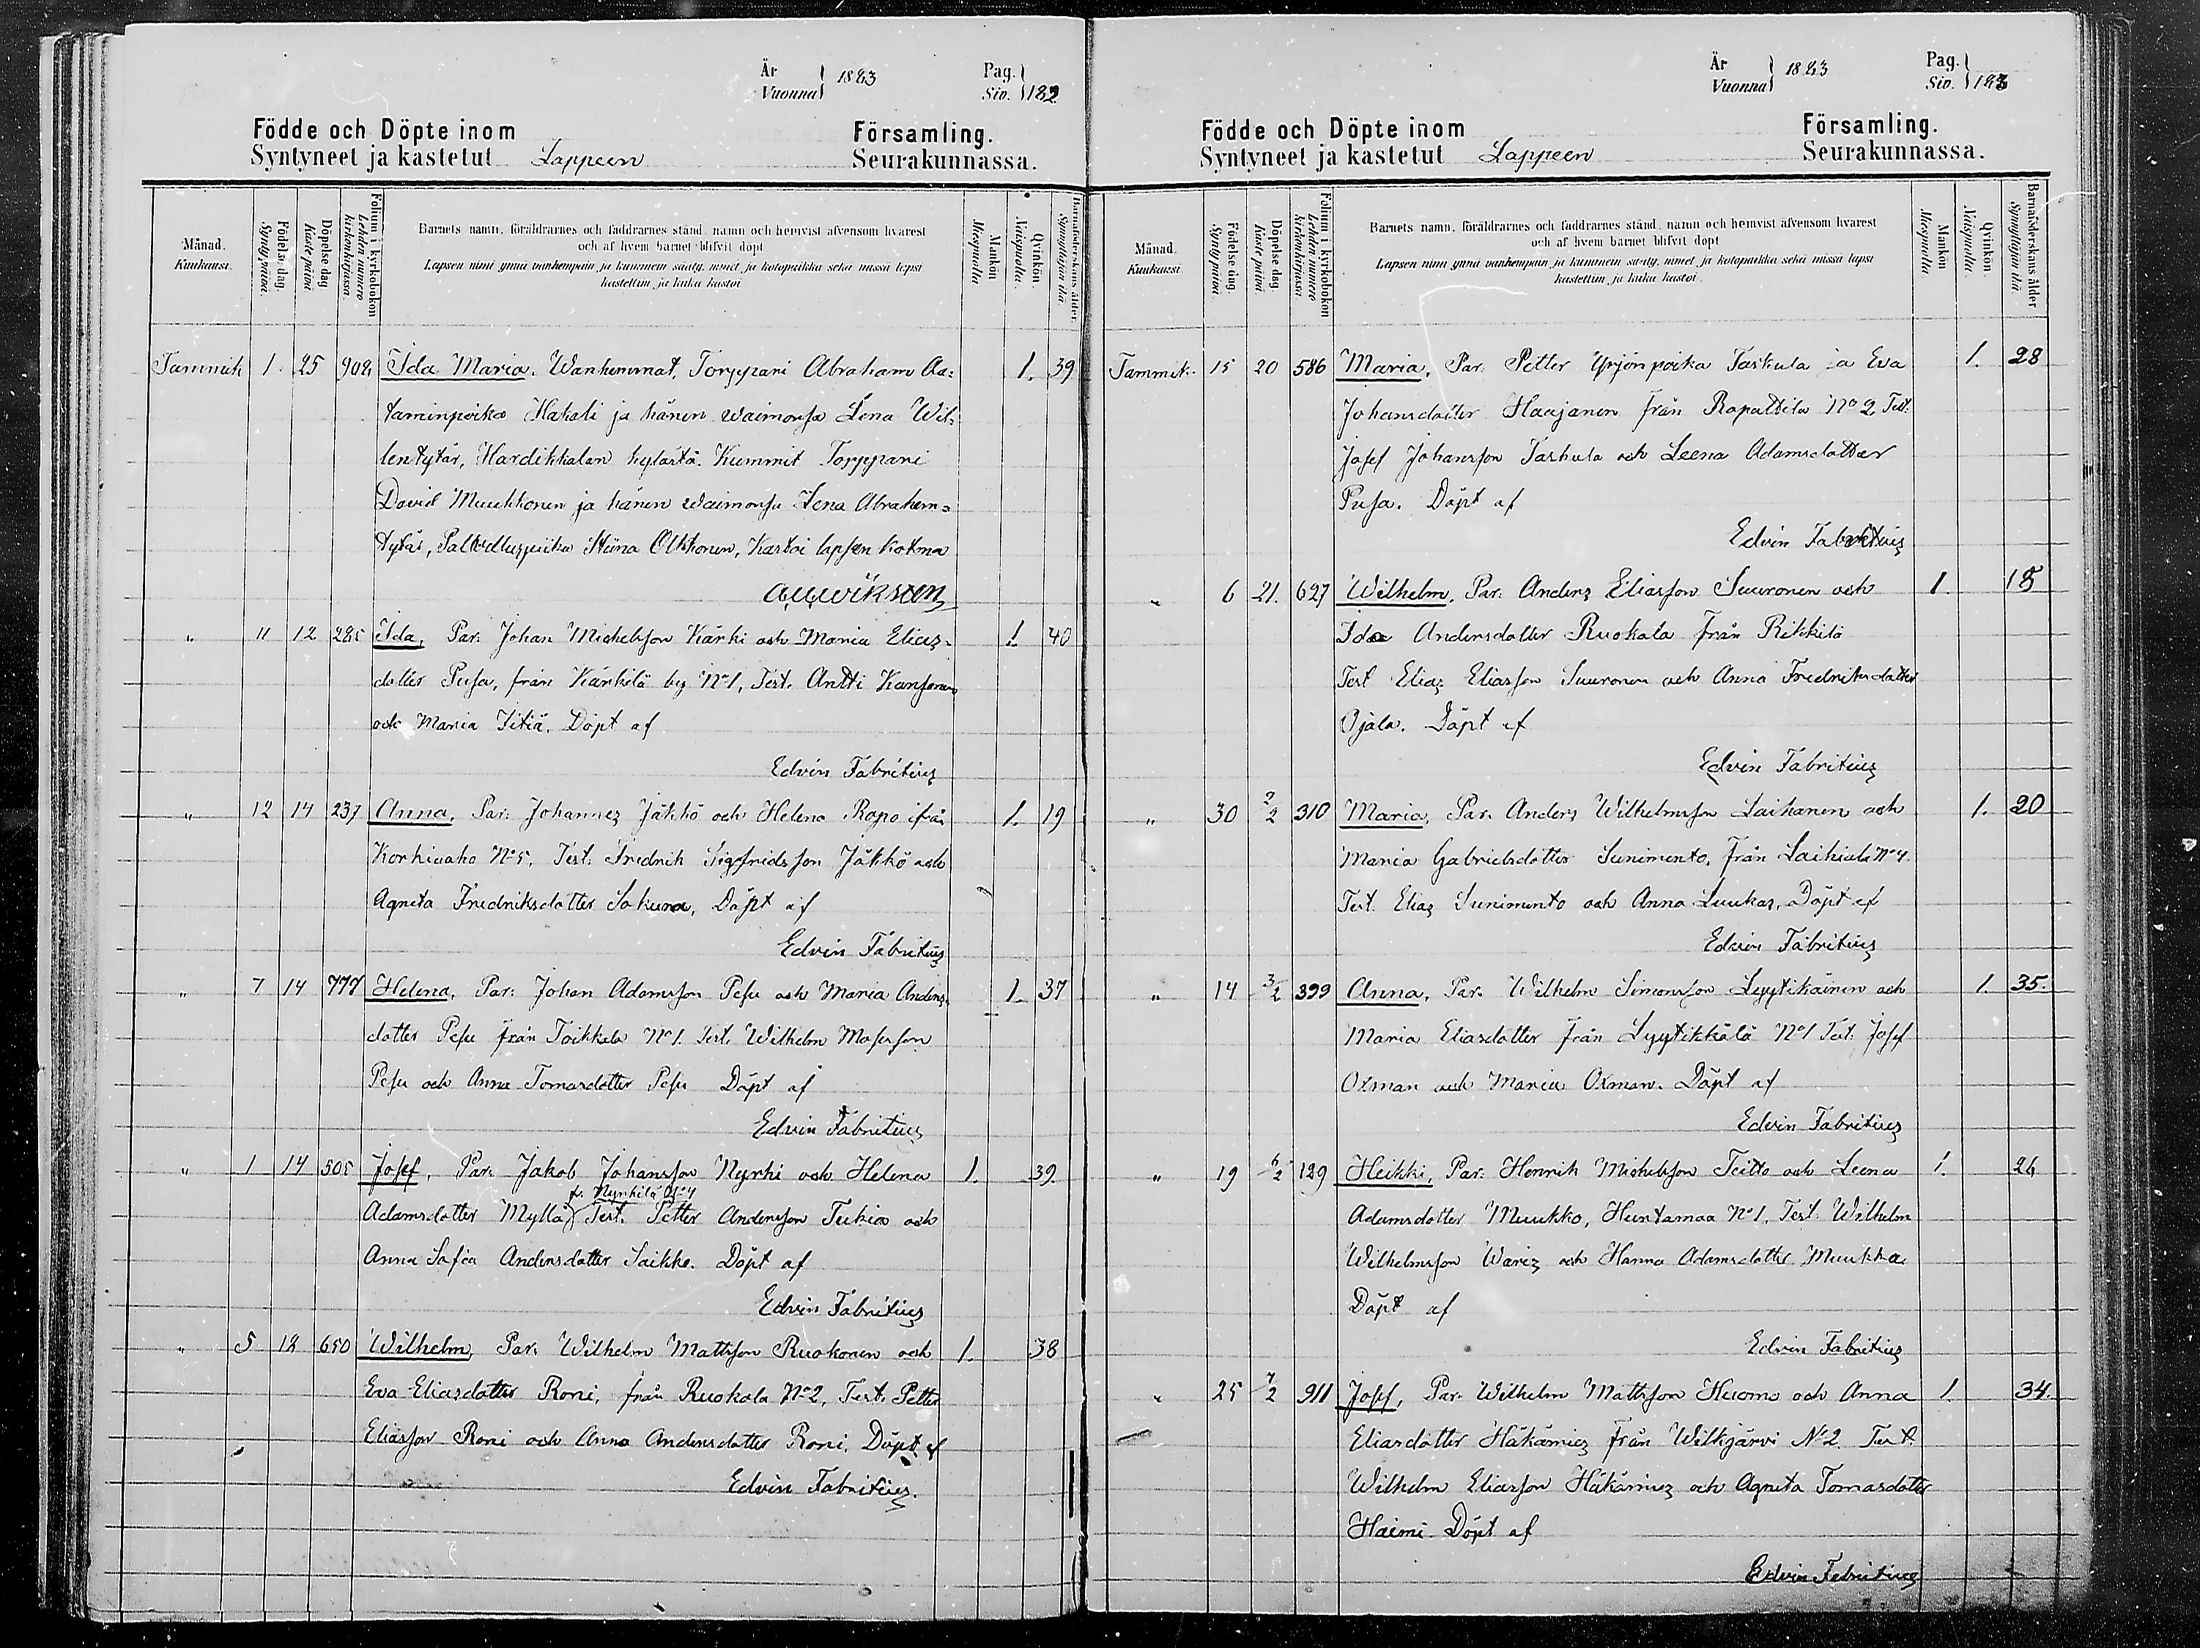 År
Vuonna 1883
Pag.
Siv. 182
Födde och Döpte inom Församling.
Syntyneet ja kastetut Lappeen Seurakunnassa.
Månad.
Kuukausi.
Födelse dag
Synty päivä.
Döpelse dag
Kaste päivä
Folium i kyrkoboken
Lehden numero kirkonkirjassa
Barnets namn, föräldrarnes och faddrarnes stånd, namn och hemvist äfvensom hvarest
och af hvem barnet blifvit döpt
Lapsen nimi ynnä vanhempain ja kummein sääty, nimet ja kotopaikka sekä missä lapsi
kastettiin ja kuka kastoi
Mankön
Miespuolia
Qvinkön
Naispuolia.
Barnaföderskans ålder.
Synnyttäjän ikä
Tammik 1. 25 902 Ida Maria. Wanhemmat, Torppari Abraham Aa= 1. 39
taminpoika Hakali ja hänen waimonsa Lena Wil=
lentytär, Hardikkalan kylästä. Kummit Torppari
David Muukkonen ja hänen waimonsa Lena Abraham=
tytär, Stiina Olkkonen, Kastoi lapsen kotma
" 11 12 285 Ida, Par. Johan Michelsson Kärki och Maria Elias- 1. 40
dotter Pusa, från Kärkilä by No 1, Test. Antti Kansonen
och Maria Iitiä. Döpt af
Edvin Fabritius
" 12 14 237 Anna, Par. Johannes Jäkkö och Helena Ropo ifrån 1. 19
Korkiaaho No 5. Test. Fredrik Sigfridsson Jäkkö och
Agneta Fredriksdotter Sakura, Döpt af
Edvin Fabritius
" 7 14 777 Helena, Par. Johan Adamsson Pesu och Maria Anders- 1. 37
dotter Pesu från Toikkala No 1. Test. Wilhelm
Pesu och Anna Tomasdotter Pesu Döpt af
Edvin Fabritius
" 1 14 505 Josef, Par. Jakob Johansson Nyrki och Helena 1. 39.
fr. Nyrkilä No 4
Adamsdotter Myllä Test. Petter Andersson Tukia och
Anna Sofia Andersdotter Saikko. Döpt af
Edvin Fabritius
" 5 12 650 Wilhelm, Par. Wilhelm Mattsson Ruokonen och 1. 38
Eva Eliasdotter Roni, från Ruokola No 2, Test. Petter
Eliasson Roni och Anna Andersdotter Roni. Döpt af
Edvin Fabritius.
År
Vuonna 1883
Pag.
Siv. 183
Födde och Döpte inom Församling.
Syntyneet ja kastetut Lappeen Seurakunnassa.
Månad.
Kuukausi
Födelse dag.
Synty päivä.
Döpelse dag.
Kaste päivä
Folium i kyrkoboken
Lehden numero kirkonkirjassa
Barnets namn, föräldrarnes och faddrarnes stånd, namn och hemvist äfvensom hvarest
och af hvem barnet blifvit döpt
Lapsen nimi ynnä vanhempain ja kummein sääty, nimet ja kotopaikka sekä missä lapsi
kastettiin ja kuka kastoi.
Mankön
Miespuolia
Qvinkön.
Naispuolia.
Barnaföderskans ålder
Synnyttäjän ikä.
Tammik. 15 20 586 Maria, Par. Petter Yrjönpoika Taskula ja Eva 1. 28
Johansdotter Haajanen från Rapattila No 2 Test.
Josef Johansson Taskula och Leena Adamsdotter
Pusa. Döpt af
Edvin Fabritius
" 6 21. 627 Wilhelm, Par. Anders Eliasson Suuronen och 1. 18
Ida Andersdotter Ruokala från Rikkilä
Test Elias Eliasson Suuronen och Anna Fredriksdotter
Ojala. Döpt af
Edvin Fabritius
" 30 2/2 310 Maria, Par. Anders Wilhelmsson Laihanen och 1. 20
Maria Gabrielsdotter Sunimento, från No 4.
Test. Elias Sunimento och Anna Luukas, Döpt af
Edvin Fabritius
" 14 3/2 399 Anna, Par. Wilhelm Simonsson Lyytikäinen och 1. 35.
Maria Eliasdotter från Lyytikkälä No 1 Test. Josef
Oxman och Maria Oxman. Döpt af
Edvin Fabritius
" 19 6/2 129 Heikki, Par. Henrik Michelsson Teitto och Leena 1. 24
Adamsdotter Muukko, Huntamaa No 1. Test. Wilhelm
Wilhelmsson Waris och Hanna Adamsdotter Muukka
Döpt af
Edvin Fabritius
" 25 7/2 911 Josef, Par. Wilhelm Mattsson Huomo och Anna 1. 34.
Eliasdotter Häkämies från Wilkjärvi No 2 Test.
Wilhelm Eliasson Häkämies och Agneta Tomasdotter
Haimi. Döpt af
Edvin Fabritius